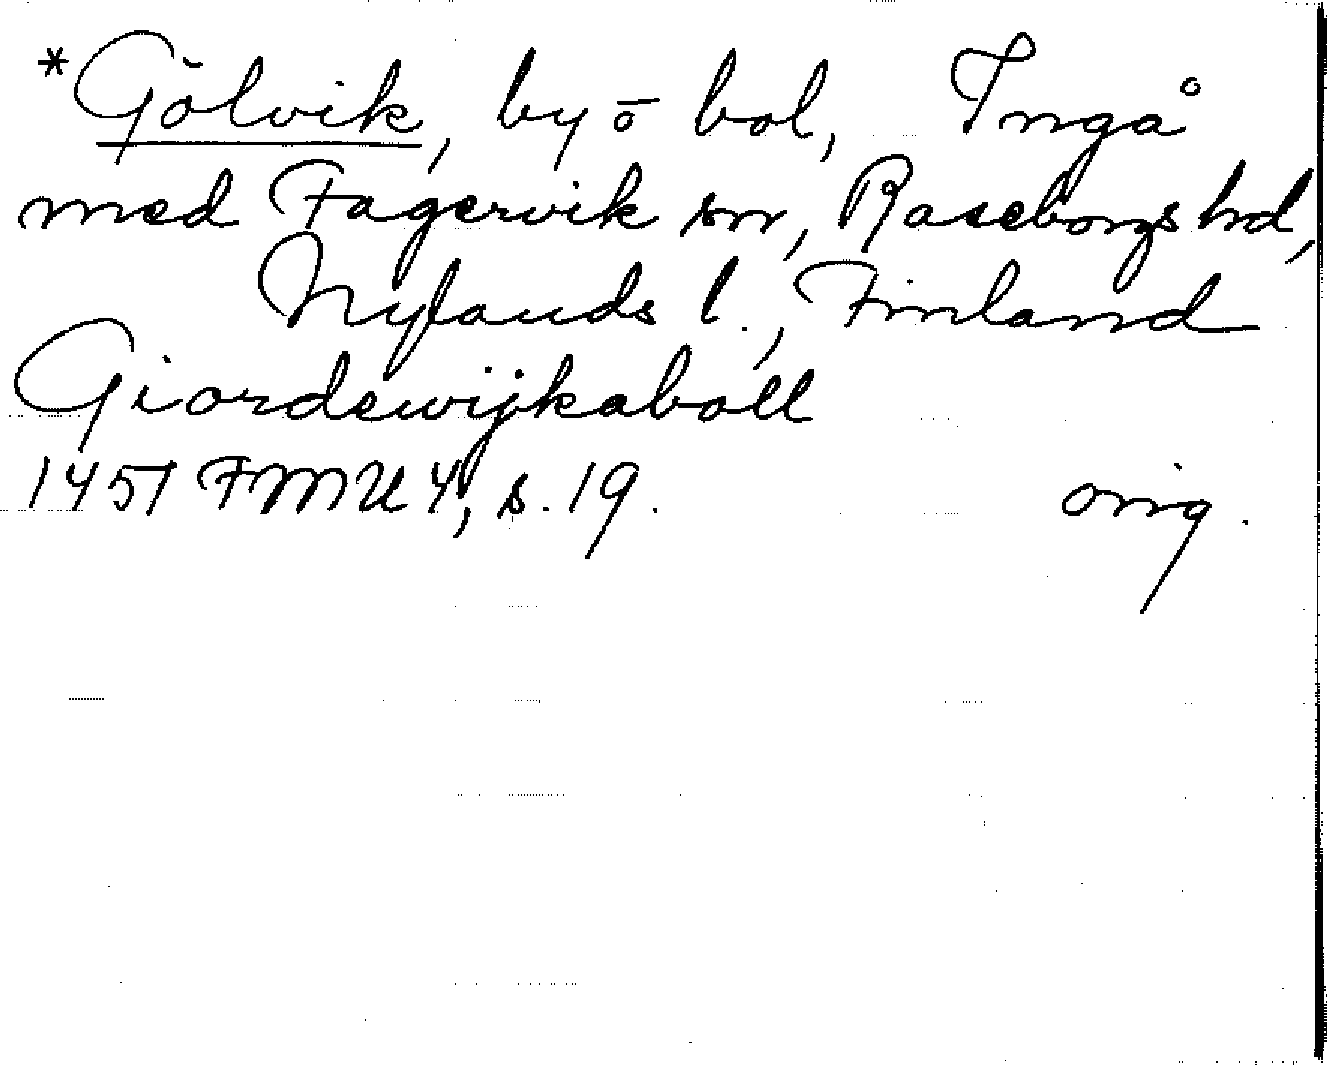 *Gölvik, by o bol, Ingå
med Fagervik snr, Raseborgs hd,
Nylands l., Finland
Giordewijkaboll
1451 FMU 4, s. 19. orig.